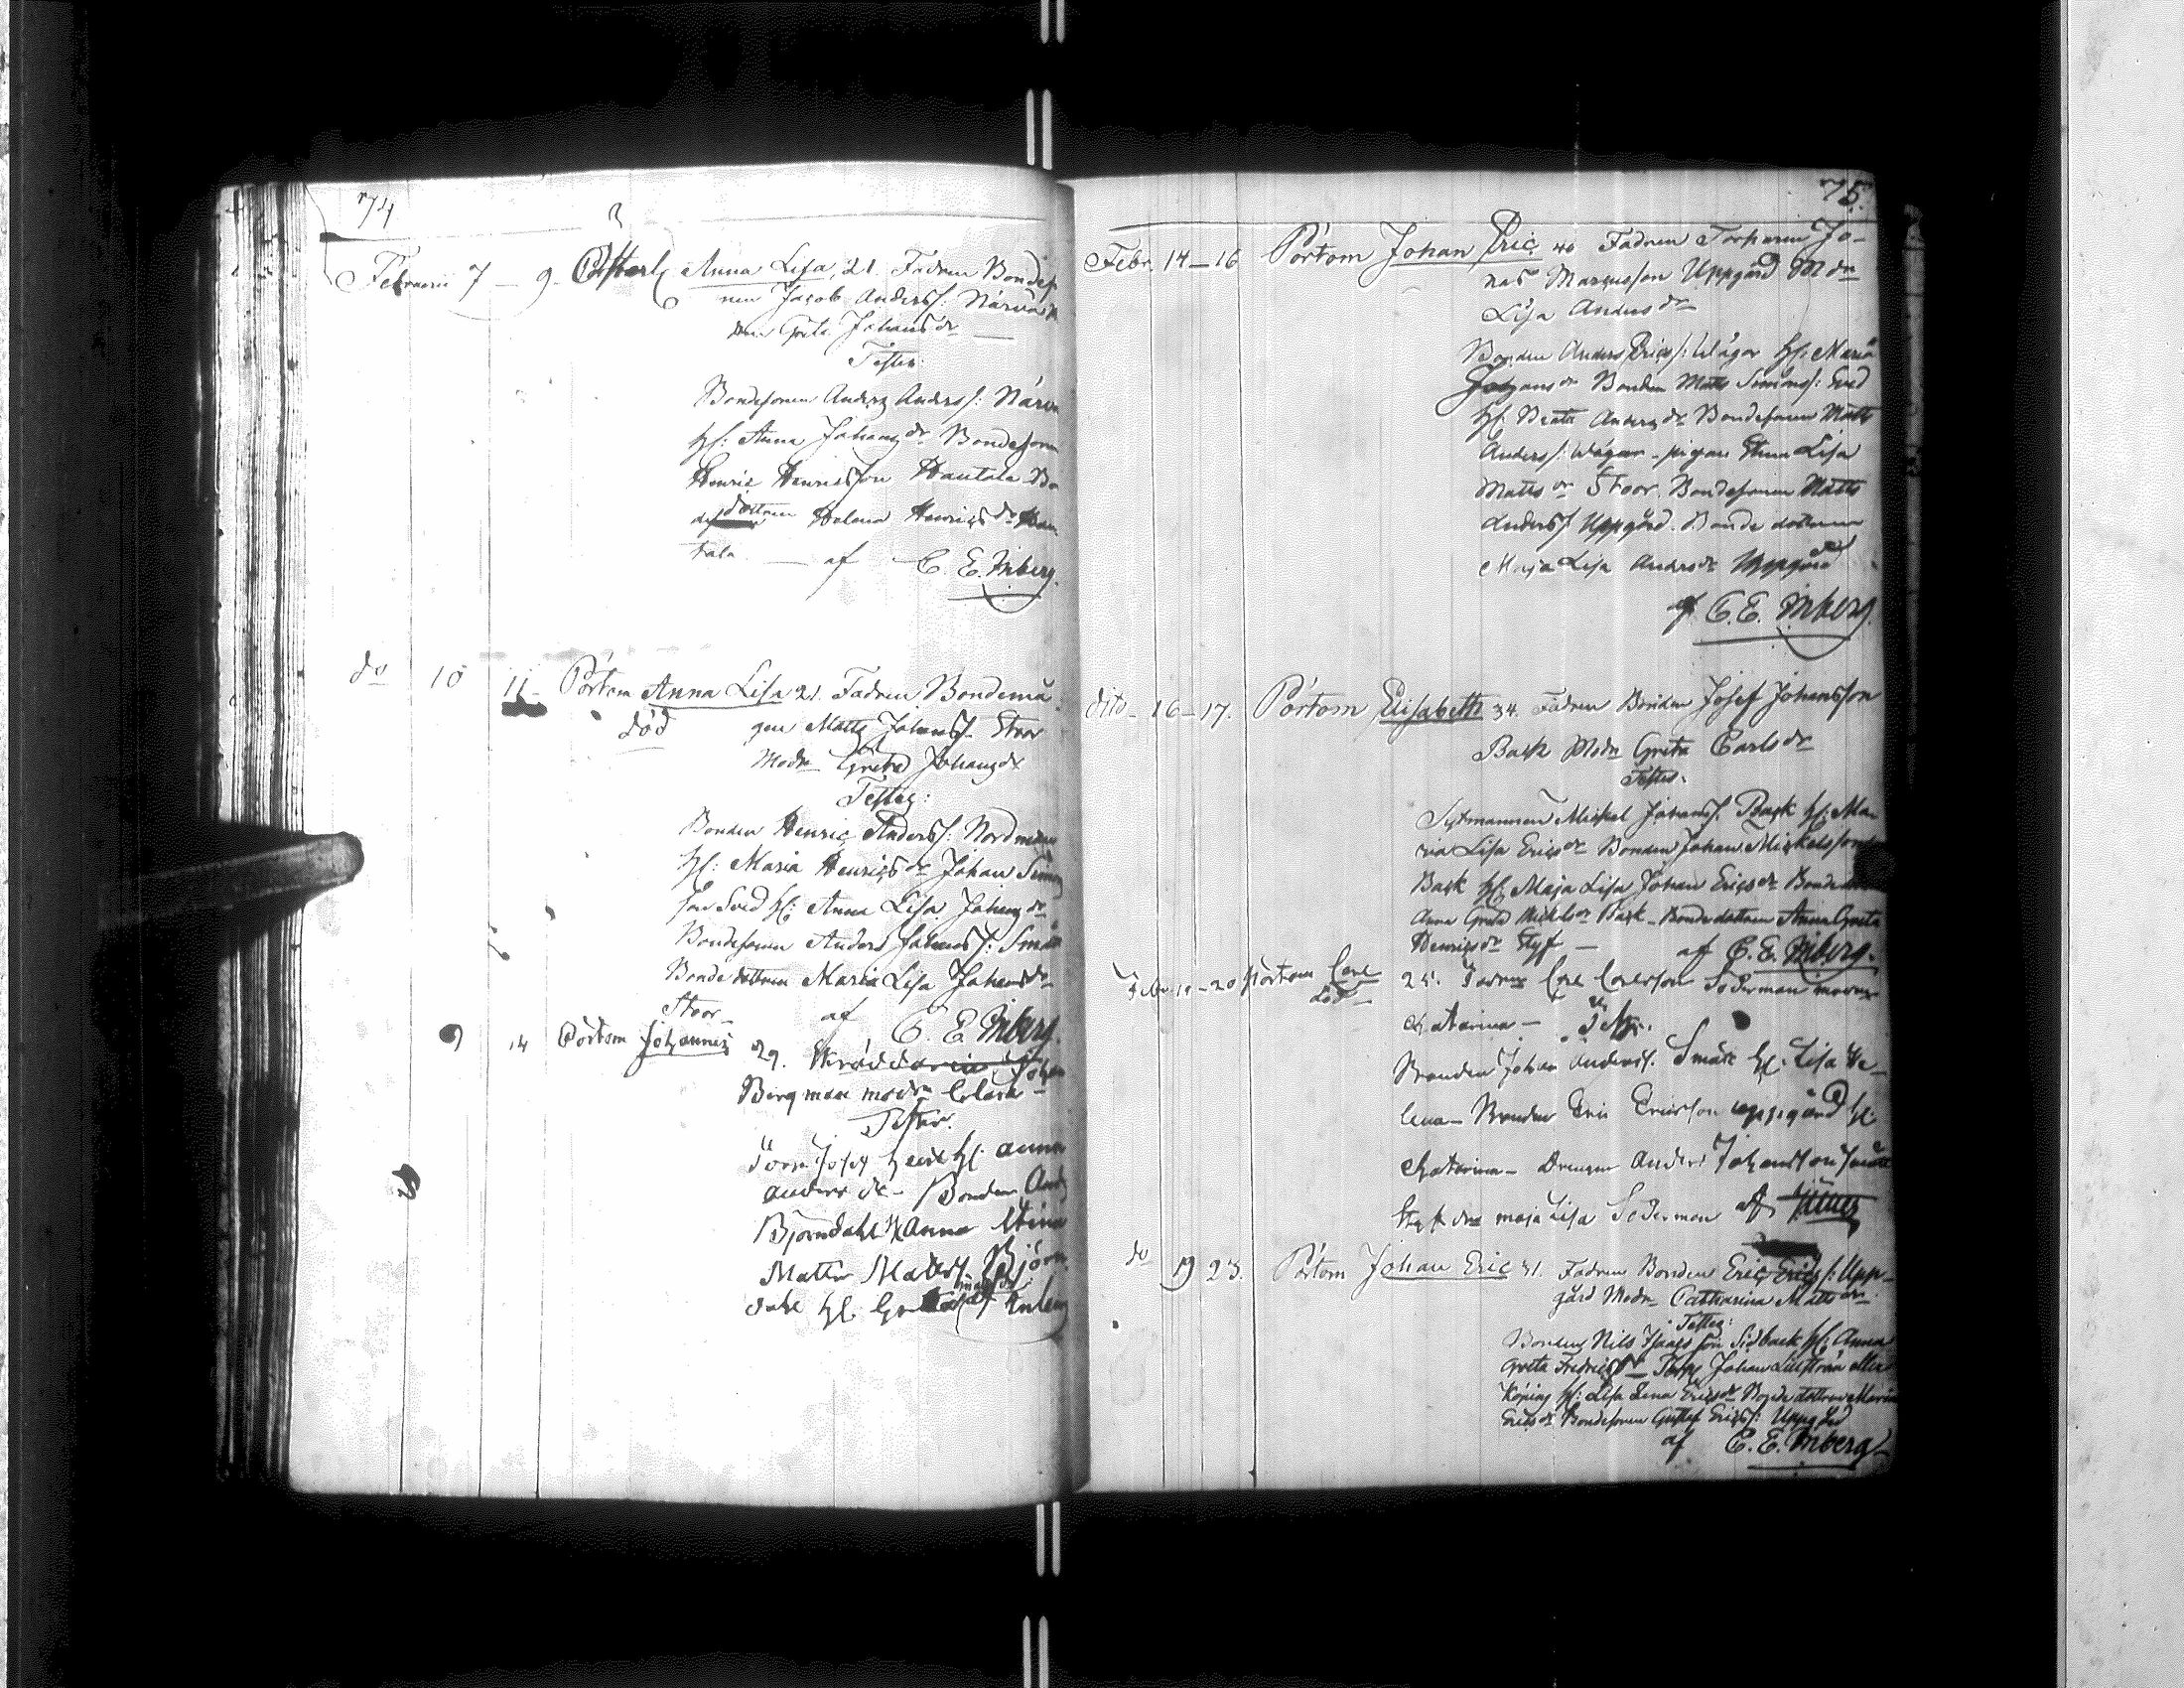 74
Februarii 7 - 9 - Anna Lisa, 21. Fadren Bondes
nen Jacob Anderss: Närvä
Greta Johans dr
Testes:
Bondesonen Anders Anderss: Närvä
H: Anna Johans dr Bondesonen
Henric Henricsson Hautala Bon
dedottren Helena Henrics dr Hau
tala - af C. E. Inberg.
do 10 11 - Pörtom Anna Lisa 21. Fadren Bondemå
död gen Matts Johanss. Stoor
Modr Greta Johans dr
Testes:
Bonden Henric Anderss: Nordman
H: Maria Henrics dr Johan Simons
son Sved H: Anna Lisa Johans dr
Bondesonen Anders Johanss: Smått
Bondedottren Maria Lisa Johans dr
Stoor af C. E. Inberg.
9 14 Pörtom Johannes 29. Johan
Bergman modr
Testes.
Josef H: Anna
Anders dr - Bonden And
Björndahl H Anna Stina
Matts Matss. Björn
dahl H:
75.
Febr. 14 - 16 Pörtom Johan Eric 40 Fadren Torparen Jo-
nas Marcusson Uppgård M dr
Lisa Anders dr
Bonden Anders Ericss: Wägar H: Maria
Johans dr Bonden Matts Simonss: Sved
H: Beata Anders dr Bondesonen Matts
Anderss: Wägar - pigan Anna Lisa
Matts dr Stoor. Bondesonen Matts
Anderss Uppgård. Bondedottren
Maja Lisa Anders dr Uppgård
af C. E. Inberg.
dito - 16 - 17. Pörtom Elisabeth 34. Fadren Bonden Josef Johansson
Back Modr Greta Carls dr
Testes.
Sytmannen Mickel Johanss. Back H: Ma-
ria Lisa Erics dr Bonden Johan Mickelsson
Back H: Maja Lisa Johan Erics dr Bonde
Anna Greta Mickels dr Back - Bondedottren Anna Greta
Henrics dr Styf - af C. E. Inberg.
Febr 19 - 20 Pörtom 25. Fadren Söderman
död Catarina - Testes.
Bonden Johan Anderss. Smått H: Lisa He-
lena - Bonden Eric Ericsson Uppgård H:
Catarina - Drengen Anders Johansson Smått
maja Lisa Söderman af
do 19 23. Pörtom Johan Eric 31. Fadren Bonden Eric Ericss: Upp-
gård Modr Catharina Matts dr
Testes:
Bonden Nils Isaacsson Sidback H: Anna
Greta Fredrics dr Johan
Köping H: Lisa Lena Erics dr Bondedottren Maria
Erics dr Bondesonen Gustaf Ericss: Uppgård
af C. E. Inberg